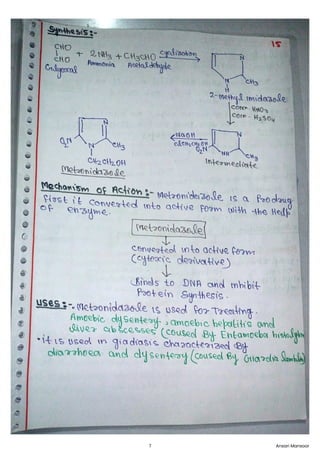 Synthesis:-
15
CHO
CHO
Glyoxal
+ 2NH3
Ammonia
+ CH3CHO
Acetaldehyde
cyclization
N
N
H
CH3
2-methyl imidazole
conc. HNO3
conc. H2SO4
O2N
NH
CH3
Intermediate
NaOH
ClCH2CH2OH
N
O2N
N
CH3
CH2CH2OH
Metronidazole
Mechanism of Action:- Metronidazole is a Prodrug
first it converted into active form with the Help
of enzyme.
Metronidazole
↓
converted into active form
(cytoxic derivative)
↓
Binds to DNA and inhibit
Protein Synthesis.
Uses:-. Metronidazole is used for Treating.
Amoebic dysentery, amoebic hepatitis and
liver abscesses (caused By Entamoeba histolytica
• it is used in giadiasis characterized By
diarrhoea and dysentery (caused By Giardia lamblia)
7
Ansari Mansoor